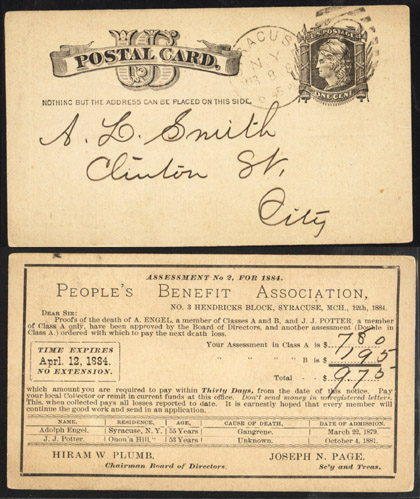 U S
POSTAL CARD.
U.S. POSTAGE
ONE CENT
ACUS
N.Y.
NOTHING BUT THE ADDRESS CAN BE PLACED ON THIS SIDE.
A. L. Smith
Clinton St,
City
ASSESSMENT No 2, FOR 1884.
PEOPLE'S BENEFIT ASSOCIATION,
NO. 3 HENDRICKS BLOCK, SYRACUSE, MCH, 12th, 1884.
DEAR SIR:
Proofs of the death of A. ENGEL, a member of Classes A and B, and J. J. POTTER, a member
of Class A only, have been approved by the Board of Directors, and another assessment (Double in
Class A.) ordered with which to pay the next death loss.
Your Assessment in Class A is 780
" " " B is 195
Total - - 975
TIME EXPIRES
Apr. 12, 1884.
NO EXTENSION.
which amount you are required to pay within Thirty Days, from the date of this notice. Pay
your local Collector or remit in current funds at this office. Don't send money in unregistered letters.
This, when collected pays all losses reported to date. It is earnestly hoped that every member will
continue the good work and send in an application.
NAME. RESIDENCE. AGE. CAUSE OF DEATH. DATE OF ADMISSION.
Adolph Engel. Syracuse, N. Y. 35 Years Gangrene. March 22, 1879.
J. J. Potter. Onon'a Hill, " 53 Years Unknown. October 4, 1881.
HIRAM W. PLUMB, JOSEPH N. PAGE,
Chairman Board of Directors. Sec'y and Treas.